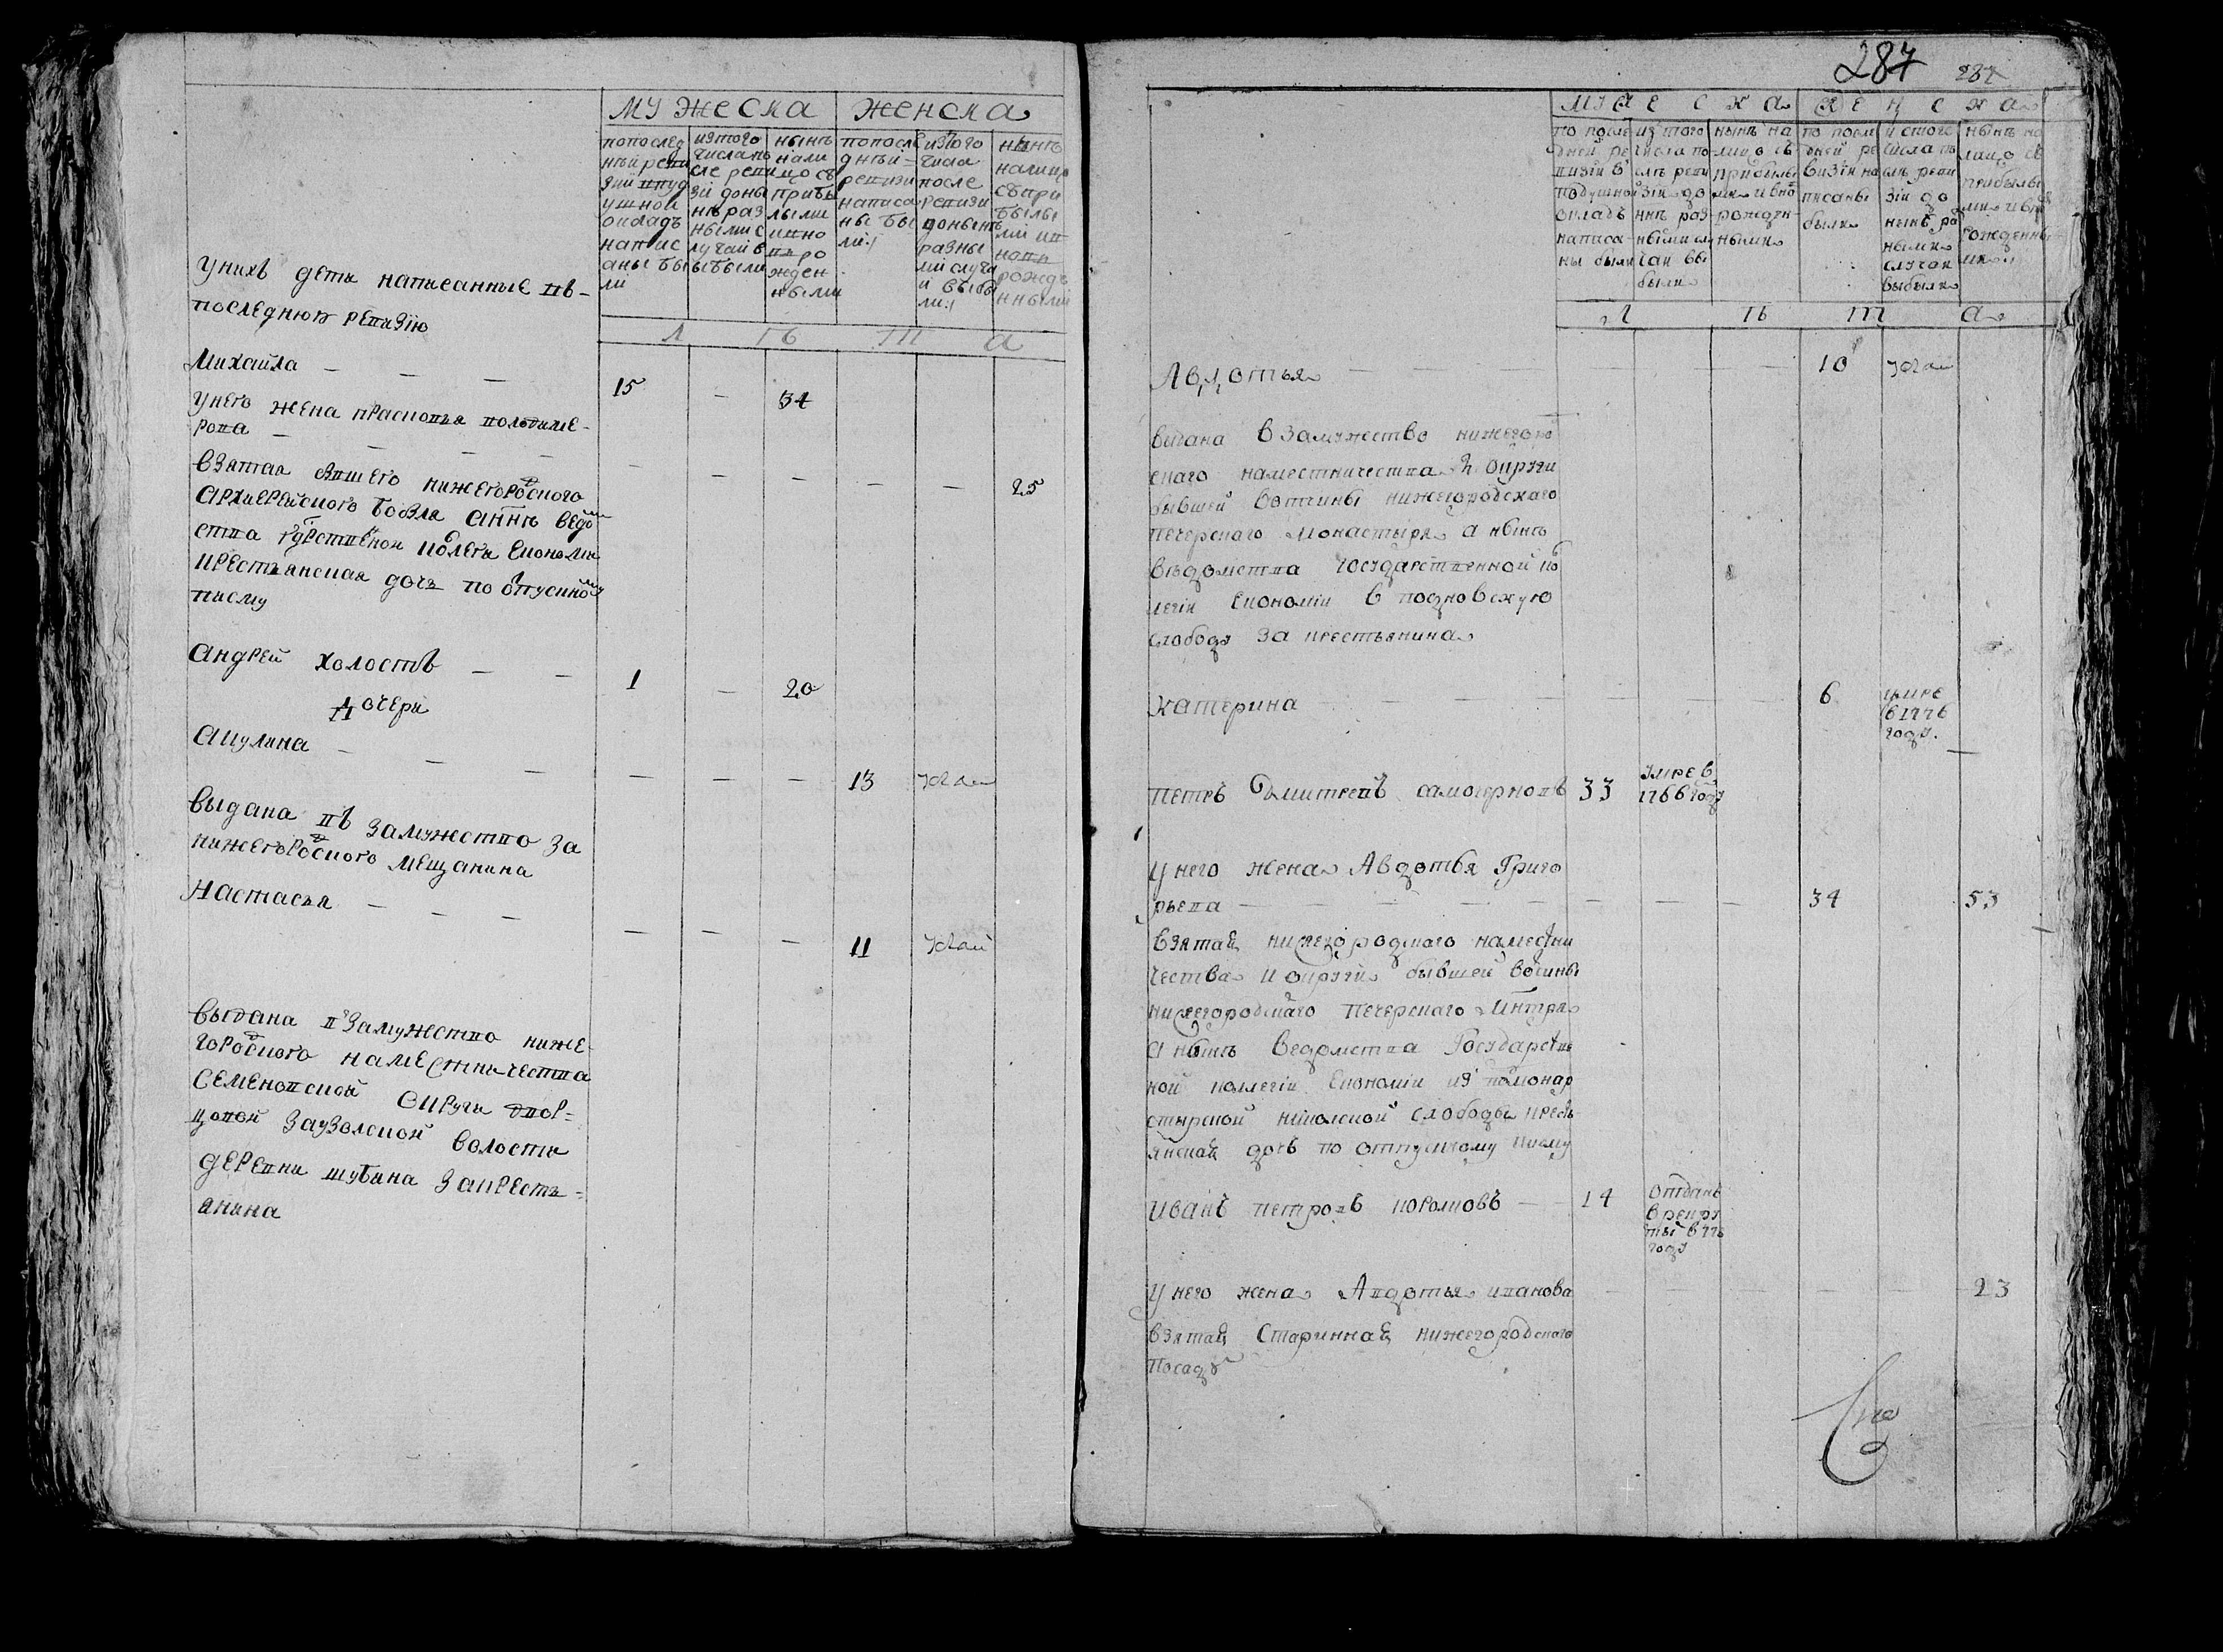 мужеска женска
попослед
ней реви
зии вдуд
ушной
окладъ
напис
аны бы
ли
изтого
числапо
сле реви
зіи доны
нѣ раз
ными с
лучай в
ыбыли
нынѣ
нали
цо съ
прибы
лыми
ивно
вь ро
жден
ными
попосле
дней
ревизи
написа
ны бы
ли
изтого
числа
после
ревизи
донынѣ
разны
ми случа
и выбы
ли
нынѣ
налицо
съпри
былы
ми ив
новь
рожде
нными
Л ѣ т а
Унихъ дети написанные въ
последнюю ревизію
Михайла — — — 15 — 34
Унего жена прасковья володиме-
рова — — — — — — — — 25
взятая
нижегородского
архиерейского
крестьянская дочь по отпускному
писму
Андрей холостъ — — 1 — 20
Дочери
Акулина — — — — — — 13
выдана въ замужество за
нижегородского мещанина
Настасья — — — — — — 11
выдана в замужество ниже-
городского наместничества
семеновской округи двор-
цовой заузолской волости
деревни шубина закресть-
янина
287 287
мужеска женска
по после
дней ре
визіи в
подушной
окладъ
написа
ны были
из того
числа по
слѣ реви
зіи до
нынѣ раз
ными слу
чаи вы
были
нынѣ на
лицо съ
прибылы
ми и вно
рожден
ными
по после
дней ре
визіи на
писаны
были
и стого
числа по
слѣ реви
зіи до
нынѣ ра
ными
случаи
выбыли
нынѣ на
лицо съ
прибылы
ми и вно
рожденны
ми
Л ѣ т а
Авдотья — — — — 10
выдана в замужество нижегоро
скаго наместничества и округи
бывшей вотчины нижегородскаго
печерскаго монастыря а нынѣ
вѣдомства государственной ко
легіи економіи в подновскую
слободу за крестьянина
Катерина — — — — — 6 умре
в 1776
году.
петръ Дмитревъ самочерновъ 33 умре в
1766 году
у него жена Авдотья Григо
рьева — — — — — — — — 34 53
взятая нижегородскаго наместни
чества и округи бывшей вотчины
нижегородскаго печерскаго мнтря
а нынѣ ведомства Государстве
ной коллегіи економіи
слободы кресть
янская дочь по отпускному писму
Иванъ петровъ — 14 отданъ
в рекру
ты в 776
году
у него жена Авдотья иванова — — — — — 23
взятая старинная нижегородскаго
посаду